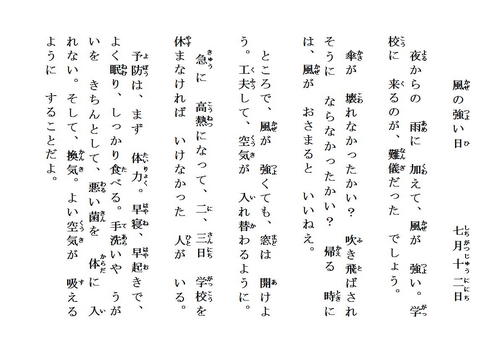 風の強い日　　七月十二日
夜からの　雨に　加えて、風が　強い。学
校に　来るのが、難儀だった　でしょう。
傘が　壊れなかったかい？　吹き飛ばされ
そうに　ならなかったかい？　帰る　時に
は、風が　おさまると　いいねえ。
ところで、風が　強くても、窓は　開けよ
う。工夫して、空気が　入れ替わるように。
急に　高熱になって、二、三日　学校を
休まなければ　いけなかった　人が　いる。
予防は、まず　体力。早寝、早起きで、
よく眠り、しっかり食べる。手洗いや　うが
いを　きちんとして、悪い菌を　体に　入
れない。そして、換気。よい空気が　吸える
ように　することだよ。